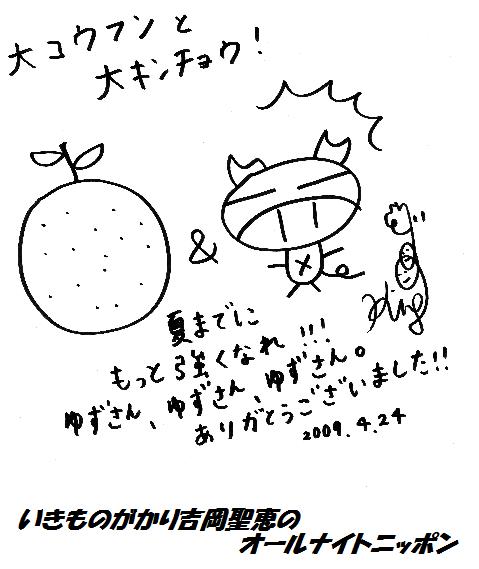 大コウフンと
大キンチョウ!
&
夏までに
もっと強くなれ!!!
ゆずさん、ゆずさん、ゆずさん。
ありがとうございました!!
2009.4.24
いきものがかり吉岡聖恵の
オールナイトニッポン